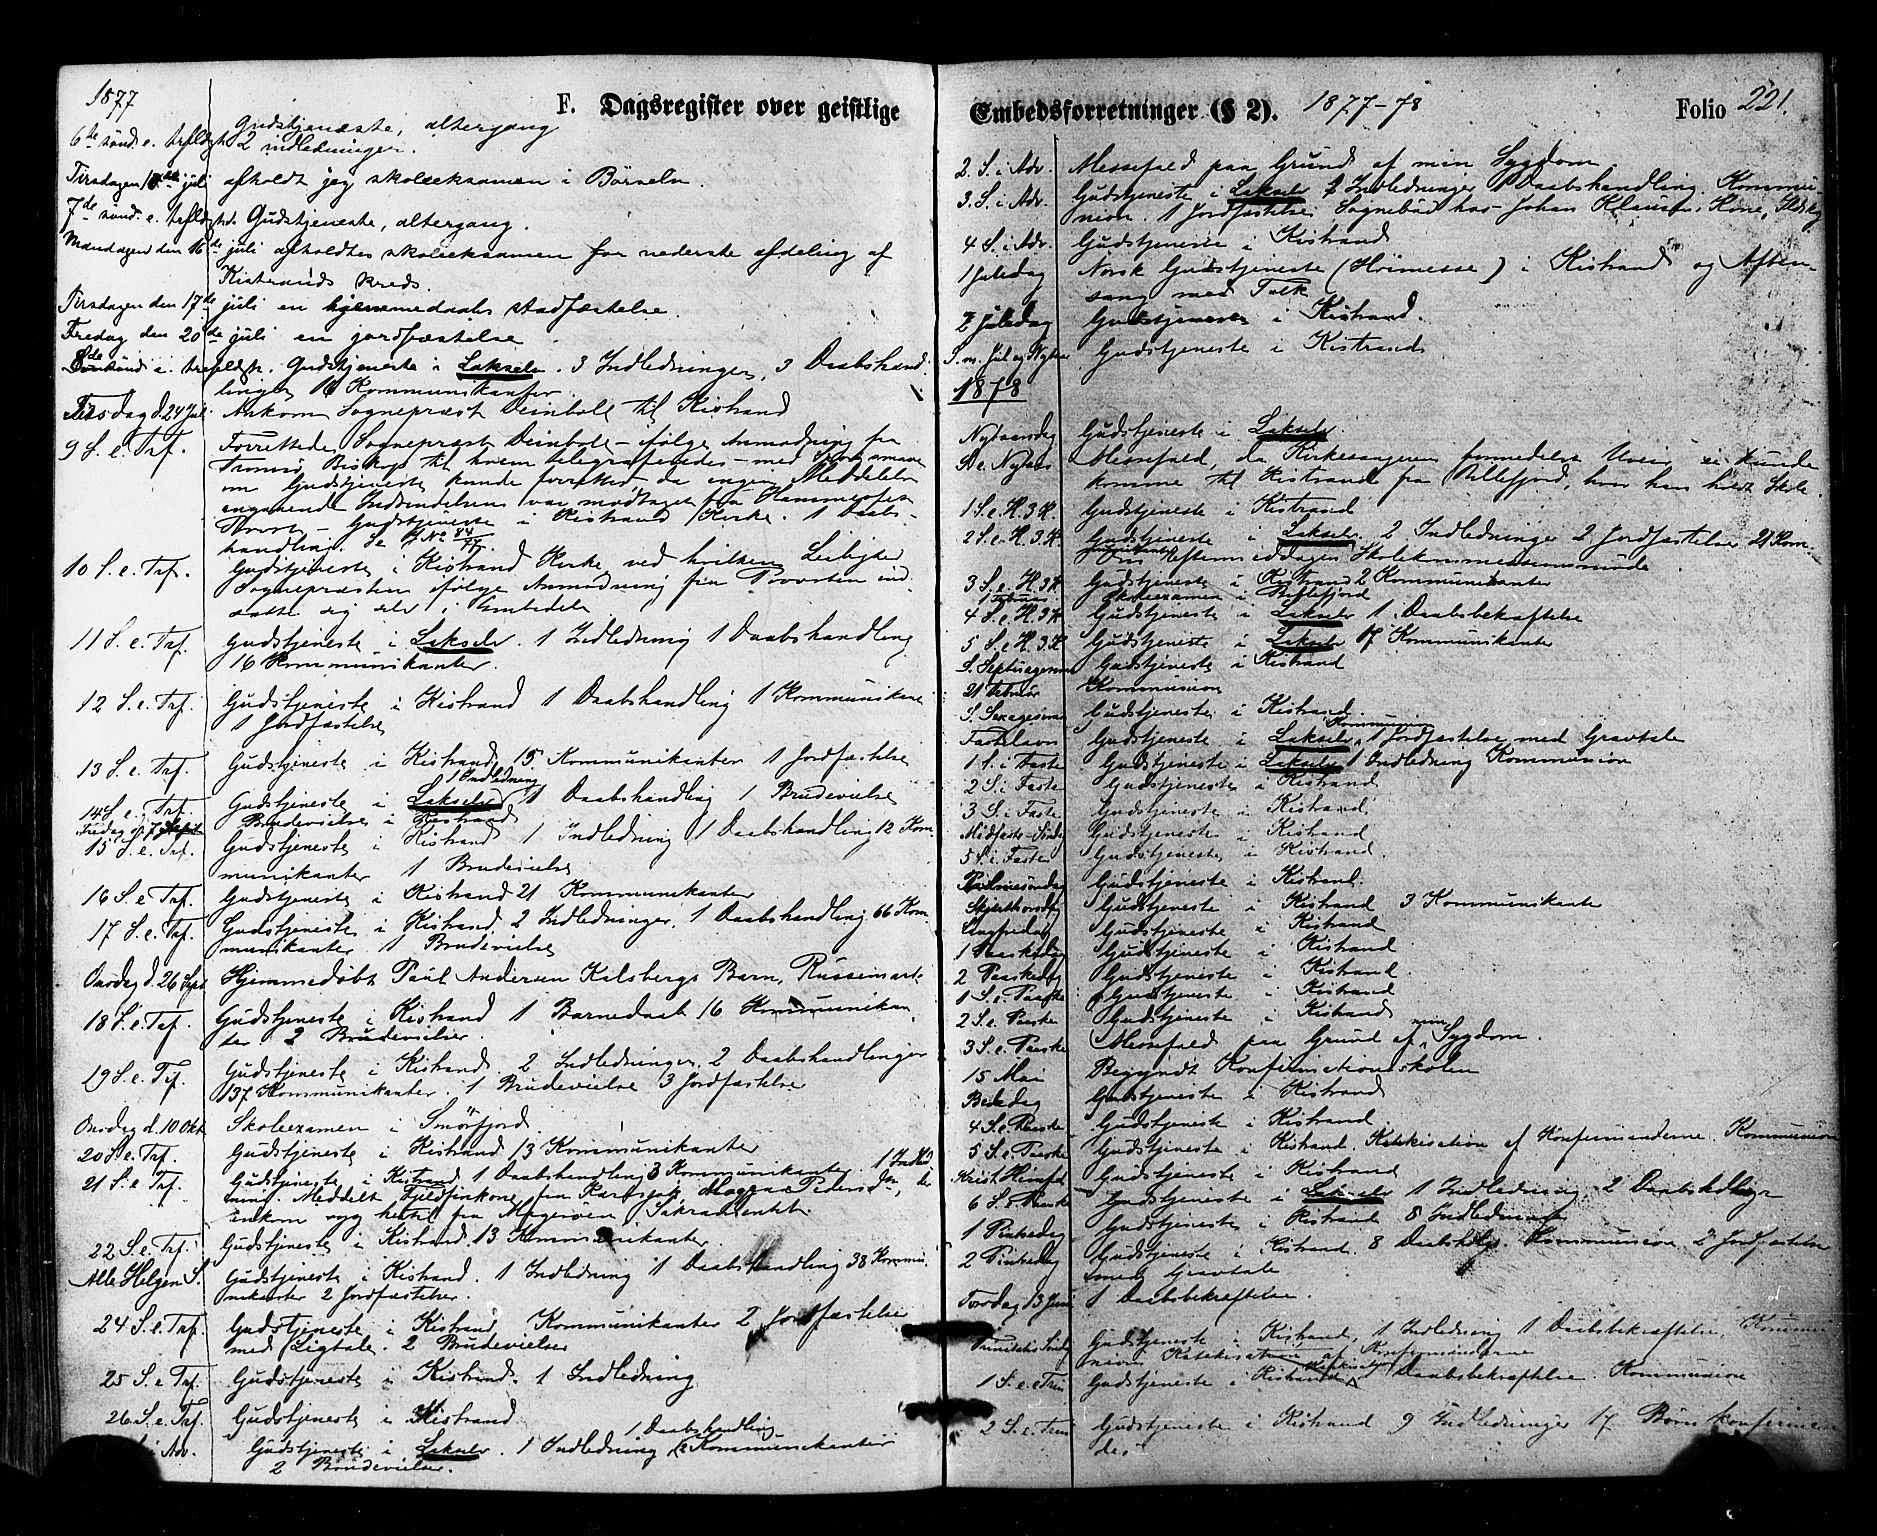 1877
F. Dagsregister over geistlige
6te sønd. e. trefldgh. Gudstjeneste, altergang
2 indledninger.
Tirsdagen 10de juli afholdt jeg skoleeksamen i Børselv.
7de sønd. e. trefldgh. Gudstjeneste, altergang.
Mandagen den 16de juli afholdtes skoleeksamen for nederste afdeling af
Kistrands kreds.
Tirsdagen den 17de juli en hjemmedaabs stadfæstelse.
Fredag den 20de juli en jordfæstelse
8de sønd. e. trefoldgh. Gudstjeneste i Lakselv. 3 Indledninger, 3 Daabshand-
linger Kommunikanter.
Tirsdag d. 24 Juli. Ankom Sognepræst Deinboll til Kistrand
9 S. e. Tref. Forrettede Sognepræst Deinboll – ifølge Anmodning fra
Tromsø Biskop til hvem telegraferedes – med
om Gudstjeneste kunde forrettes, da ingen Meddelelse
angaaende Indsendelsen var modtaget fra Hammerfest
– Gudstjeneste i Kistrand Kirke. 1 Daabs-
handling. Se J No 84/77.
10 S. e. Tref. Gudstjeneste i Kistrand Kirke ved hvilken Leilighed
Sognepræsten ifølge Anmodning fra Provsten ind-
satte sig selv i Embedet
11 S. e. Tref. Gudstjeneste i Lakselv. 1 Indledning 1 Daabshandling
16 Kommunikanter.
12 S. e. Tref. Gudstjeneste i Kistrand 1 Daabshandling 1 Kommunikant
1 Jordfæstelse
13 S. e. Tref. Gudstjeneste i Kistrand, 15 Kommunikanter 1 Jordfæstelse
14 S. e. Tref. Gudstjeneste i Lakselv 1 Indledning 1 Daabshandling 1 Brudevielse
Fredag d. 7 Sept Brudevielse i Kistrand
15 S. e. Tref. Gudstjeneste i Kistrand 1 Indledning 1 Daabshandling 12 Kom
munikanter 1 Brudevielse
16 S. e. Tref. Gudstjeneste i Kistrand 21 Kommunikanter
17 S. e. Tref. Gudstjeneste i Kistrand. 2 Indledninger. 1 Daabshandling 66 Kom
munikanter 1 Brudevielse
Onsdag d. 26 Sept Hjemmedøbt Paul Andersen Kalsbergs Barn,
18 S. e. Tref. Gudstjeneste i Kistrand 1 Barnedaab 16 Kommunikan
ter 2 Brudevielser.
19 S. e. Tref. Gudstjeneste i Kistrand. 2 Indledninger. 2 Daabshandlinger
137 Kommunikanter. 1 Brudevielse 3 Jordfæstelser
Onsdag d. 10 Okt Skoleexamen i Smörfjord.
20 S. e. Tref. Gudstjeneste i Kistrand 13 Kommunikanter
21 S. e. Tref. Gudstjeneste i Kistrand. 1 Daabshandling 3 Kommunikanter 1 Indled
ning. Meddelt Fjeldfinkone fra Karasjok,
ankom syg hertil fra Magerøen, Sakramentet.
22 S. e. Tref. Gudstjeneste i Kistrand. 13 Kommunikanter.
Alle Helgen S. Gudstjeneste i Kistrand. 1 Indledning 1 Daabshandling 38 Kommu-
nikanter 2 Jordfæstelser.
24 S. e. Tref. Gudstjeneste i Kistrand Kommunikanter 2 Jordfæstelser
med Ligtale. 2 Brudevielser
25 S. e. Tref. Gudstjeneste i Kistrand. 1 Indledning
26 S. e. Tref. Gudstjeneste i Kistrand
i Adv. Gudstjeneste i Lakselv. 1 Indledning 1 Daabshandling Kommunikanter
2 Brudevielser.
Embedsforretninger (§ 2). 1877-78
Folio 221.
2. S. i Adv. Messefald paa Grund af min Sygdom
3. S. i Adv. Gudstjeneste i Lakselv 2 Indledninger 1 Daabshandling. Kommu-
nion. 1 Jordfæstelse. Sognebud hos Johan Klausens Kone,
4 S. i Adv. Gudstjeneste i Kistrand
1 Juledag Norsk Gudstjeneste (Høimesse) i Kistrand og Aften-
sang med Tolk
2 Juledag Gudstjeneste i Kistrand.
S. m. Jul og Nytaar Gudstjeneste i Kistrand
1878
Nytaarsdag Gudstjeneste i Lakselv.
S. e. Nytaar Messefald, da Kirkesangeren formedelst Uveir ei kunde
komme til Kistrand fra Billefjord, hvor han holdt Skole.
1 S. e. H. 3 K. Gudstjeneste i Kistrand
2 S. e. H. 3 K. Gudstjeneste i Lakselv. 2 Indledninger 2 Jordfæstelser 21 Kom-
munikanter Om Eftermiddagen Skolekommissionsmøde
3 S. e. H. 3 K. Gudstjeneste i Kistrand 2 Kommunikanter
1 Februar Skoleexamen i Billefjord
4 S. e. H. 3 K Gudstjeneste i Lakselv 1 Daabsbekræftelse
5 S. e. H. 3 K Gudstjeneste i Lakselv 17 Kommunikanter
S. Septuagesima Gudstjeneste i Kistrand
21 Februar Kommunion
S. Sexagesima Gudstjeneste i Kistrand.
Fastelavn Gudstjeneste i Lakselv, Kommunion 1 Jordfæstelse med Gravtale
1 S. i Faste Gudstjeneste i Lakselv 1 Indledning Kommunion
2 S. i Faste Gudstjeneste i Kistrand
3 S. i Faste Gudstjeneste i Kistrand
Midfaste-Søndag Gudstjeneste i Kistrand
5 S. i Faste Gudstjeneste i Kistrand.
Palmesøndag Gudstjeneste i Kistrand.
Skjærthorsdag Gudstjeneste i Kistrand 3 Kommunikanter
Langfredag Gudstjeneste i Kistrand
1 Paaskedag Gudstjeneste i Kistrand
2 Paaskedag Gudstjeneste i Kistrand.
1 S. e. Paaske Gudstjeneste i Kistrand
2 S. e. Paaske Gudstjeneste i Kistrand
3 S. e. Paaske Messefald paa Grund af min Sygdom.
15 Mai Begyndt Konfirmationsskolen
Bededag Gudstjeneste i Kistrand
4 S. e. Paaske Gudstjeneste i Kistrand
5 S. e. Paaske Gudstjeneste i Kistrand. Katekisation af Konfirmanderne Kommunion
Krist. Himmelf. Gudstjeneste i Kistrand
6 S. e. Paaske Gudstjeneste i Lakselv 1 Indledning 2 Daabshdlgr
1 Pintsedag Gudstjeneste i Kistrand 8 Indledninger
2 Pintsedag Gudstjeneste i Kistrand. 8 Daabshdlgr. Kommunion 2 Jordfæstelser
med Gravtale
Torsdag 13 Juni 1 Daabsbekræftelse.
Trinitatis Søndag Gudstjeneste i Kistrand, 1 Indledning 1 Daabsbekræftelse, Kommu
nion Katekisation af Konfirmanderne
1 S. e. Trin Gudstjeneste i Kistrand Katekisation 1 Daabsbekræftelse. Kommunion
2 S. e. Trin Gudstjeneste i Kistrand 9 Indledninger 17 Børn konfirmere
des